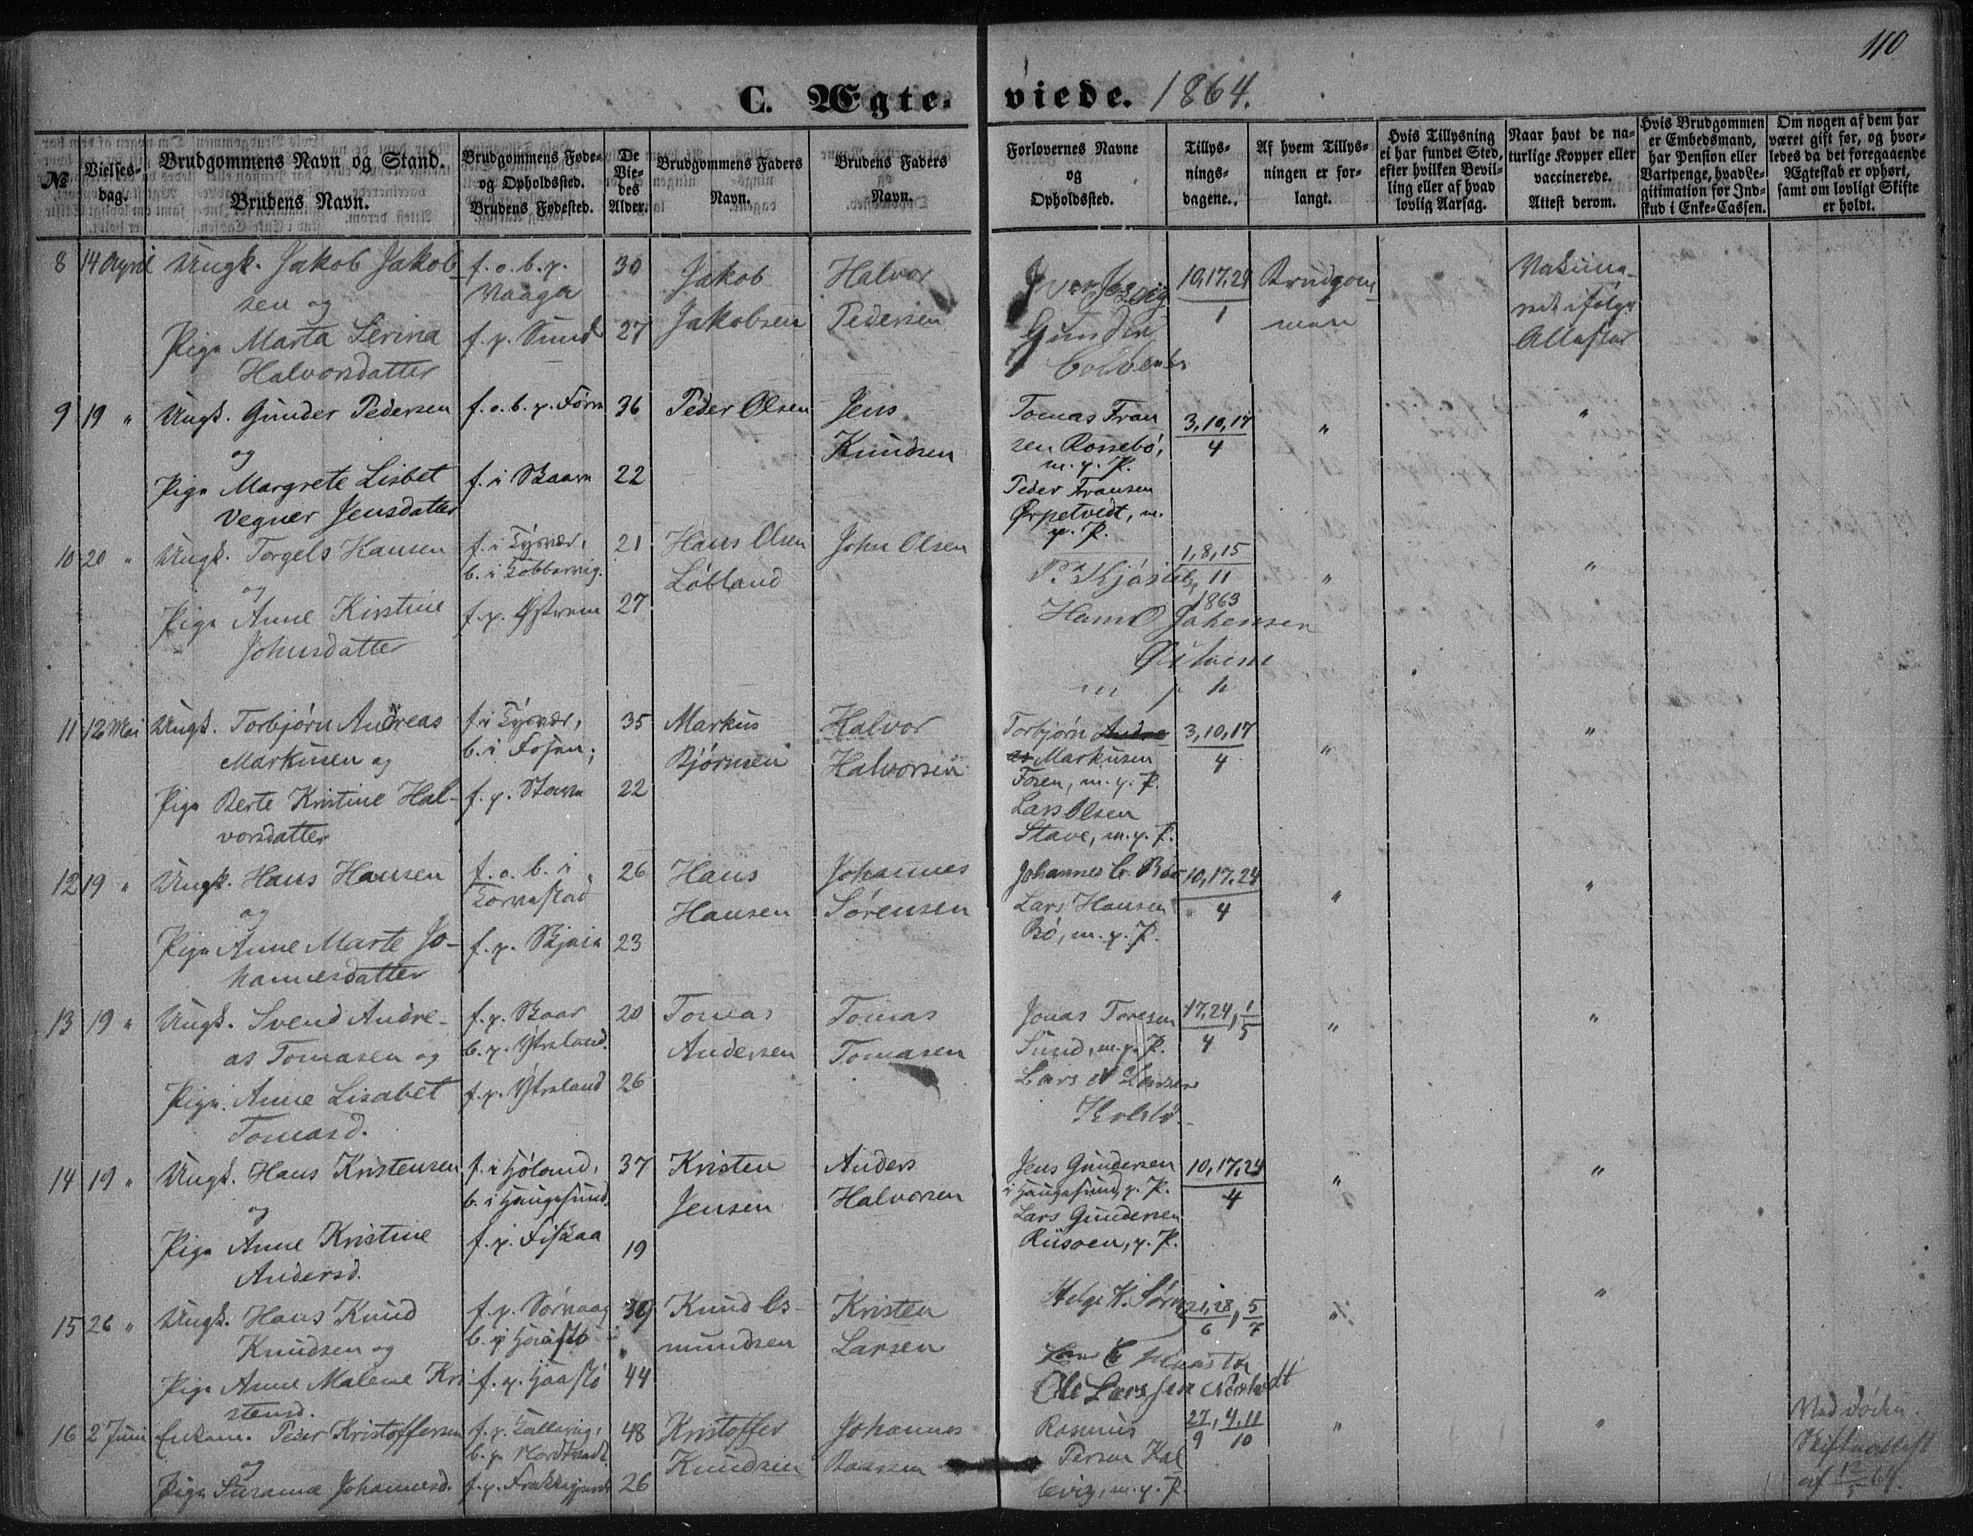 110
C. Ægte-viede. 1864.
№
Vielses-dag.
Brudgommens Navn og Stand.
Brudens Navn.
Brudgommens Føde- og Opholdssted.
Brudens Fødested.
De Viedes Alder.
Brudgommens Faders Navn.
Brudens Faders Navn.
Forlovernes Navne og Opholdssted.
Tillysningsdagene.
Af hvem Tillysningen er forlangt.
Hvis Tillysning ei har fundet Sted, efter hvilken Bevilling eller af hvad lovlig Aarsag.
Naar havt de naturlige Kopper eller vaccinerede. Attest derom.
Hvis Brudgommen er Embedsmand, har Pension eller Vartpenge, hvad Legitimation for Indskud i Enke-Cassen.
Om nogen af dem har været gift før, og hvorledes da det foregaaende Ægteskab er ophørt, samt om lovligt Skifte er holdt.
8 14 April Ungk. Jakob Jakob- f. o. b. p. 30 Jakob Halvor 10,17,24 Brudgom-
sen og Vaaga Jakobsen Pedersen 1 men
Pige Marta Serina f. p. Sund 27 Gunder
Halvorsdatter
9 19 " Ungk. Gunder Pedersen f. o. b. p. 36 Peder Olsen Jens Tomas Fran 3,10,17 " "
og Knudsen zen Rossebø, 4
m. p. P.
Pige Margrete Lisbet f. i Skaare 22 Peder Fransen
Vegner Jensdatter Ørpetvedt, m.
p. P.
10 20 " Ungk. Torgels Hansen f. i Tysvær, 21 Hans Olsen John Olsen 1,8,15 " "
og b. i Lobbervig. Løbland 11
Pige Anne Kirstine f. p. 27 1863
Johnsdatter Hans O Johensen
m p h
11 12 Mai Ungk. Torbjørn Andreas f. i Tysvær, 35 Markus Halvor Torbjørn Andre 3,10,17 " "
Markusen og b. i Fosen; Bjørnsen Halvorsen as Markusen 4
Pige Berte Kristine Hal- f. p. 22 Fosen, m. p. P.
vorsdatter Lars Olsen
Stave, m. p. P.
12 19 " Ungk. Hans Hansen f. o. b. i 26 Hans Johannes Johannes 10,17,24 " "
og Tornestad Hansen Sørensen Lars Hansen 4
Pige Anne Marte Jo- f. p. 23 Bø, m. p. P.
hannesdatter
13 19 " Ungk. Svend Andre- f. p. Skaar 20 Tomas Tomas Jonas Toresen 17,24, 1 " "
as Tomasen og b. p. Ytreland. Andersen Tomasen Sund, m. p. P. 4 5
Pige Anne Lisabet f. p. Ytreland 26 Lars
Tomasd. Kolstø.
14 19 " Ungk. Hans Kristensen f. i Høland, 37 Kristen Anders Jens Gundersen 10,17,24 " "
og b. i Haugesund. Jensen Halvorsen i Haugesund, p. P. 4
Pige Anne Kristine f. p. Fiskaa 19 Lars Gundersen
Andersd. Risøen, p. P.
15 26 " Ungk. Hans Knud f. p. Sørvaag 39 Knud Os- Kristen Helge K. 21,28, 5 " "
Knudsen og mundsen Larsen 6 7
Pige Anne Malene Kri- f. p. Haastø 44
stensd. Ole Larssen
16 2 Juni Enkem. Peder Kristoffersen f. p. 48 Kristoffer Johannes Rasmus 27, 4,11 " " Ved Døden.
og Knudsen 9 10 Skifteattest
Pige Susanne Johannesd. f. p. 26 m. p. P. af 12/5 64.